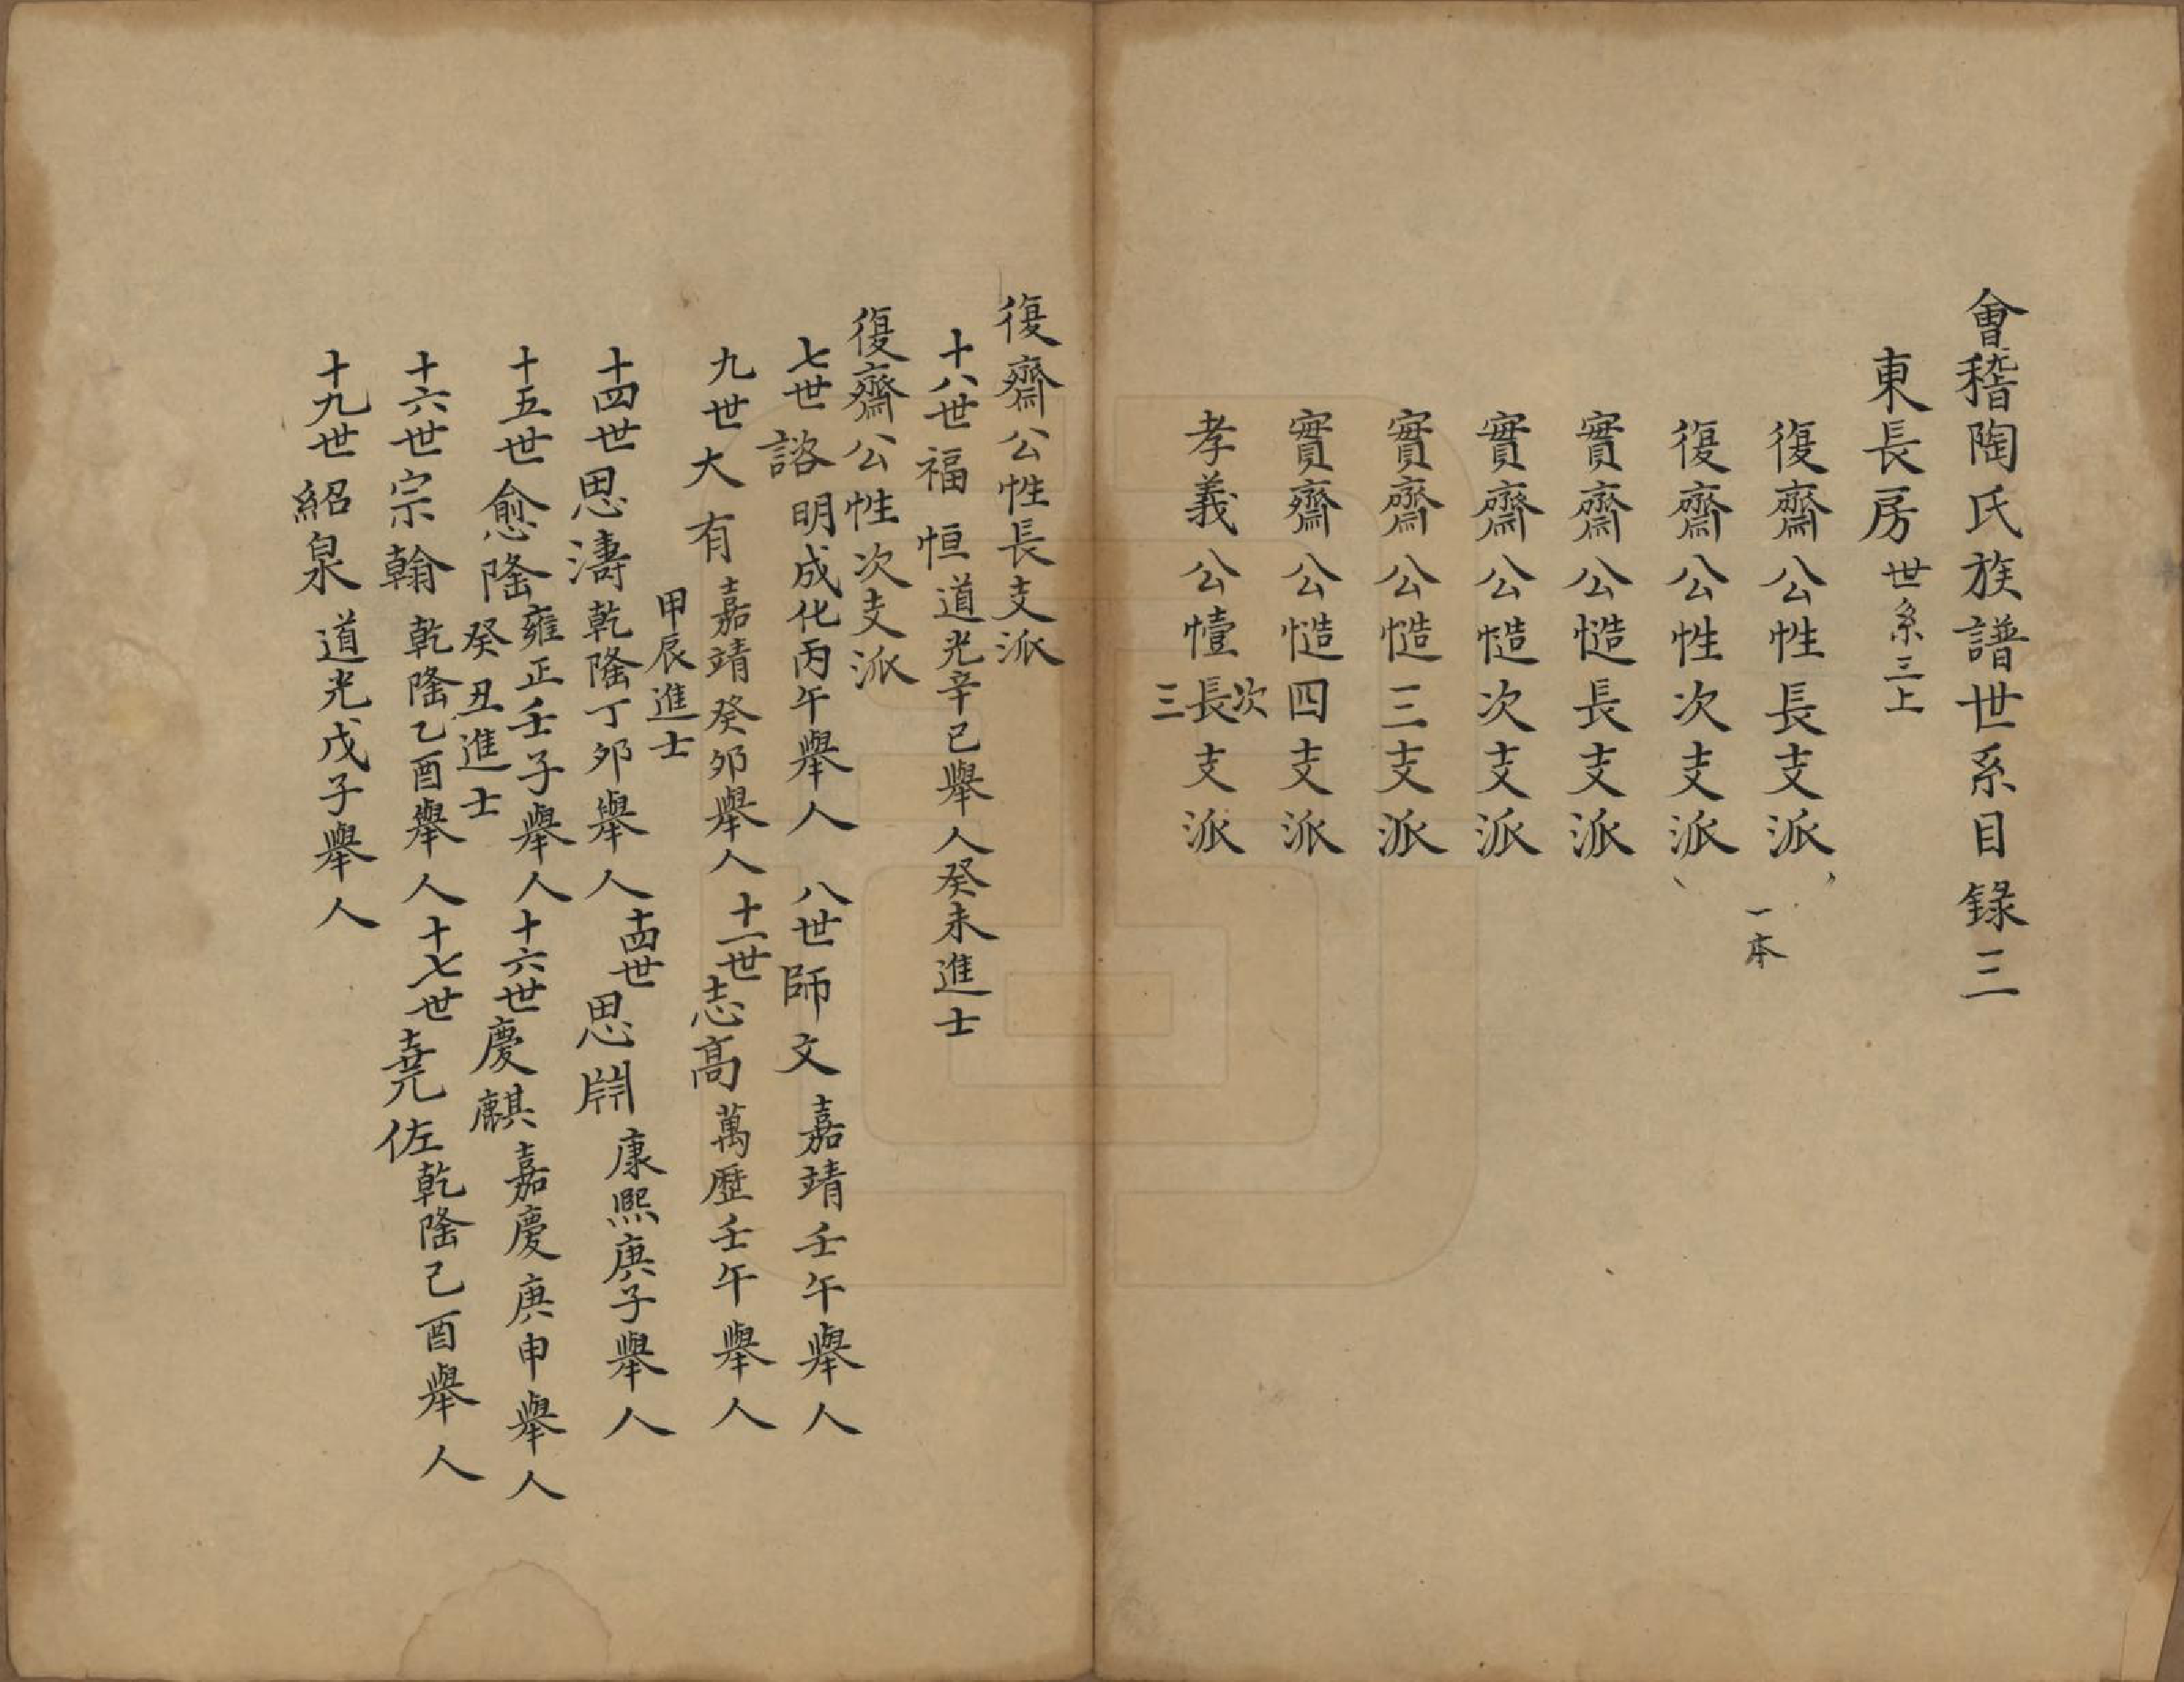 會稽陶氏族譜世系目錄三
東長房世系三上
復齋公性長支派
一本
復齋公性次支派
實齋公慥長支派
實齋公慥次支派
實齋公慥三支派
實齋公慥四支派
孝義公㦤長次三支派
復齋公性長支派
十八世福恒道光辛巳舉人癸未進士
復齋公性次支派
七世諮明成化丙午舉人 八世師文嘉靖壬午舉人
九世大有嘉靖癸卯舉人甲辰進士 十一世志高萬歷壬午舉人
十四世思濤乾隆丁卯舉人 十四世思𣶒康熙庚子舉人
十五世愈隆雍正壬子舉人癸丑進士 十六世慶麒嘉慶庚申舉人
十六世宗翰乾隆乙酉舉人 十七世堯佐乾隆己酉舉人
十九世紹泉道光戊子舉人